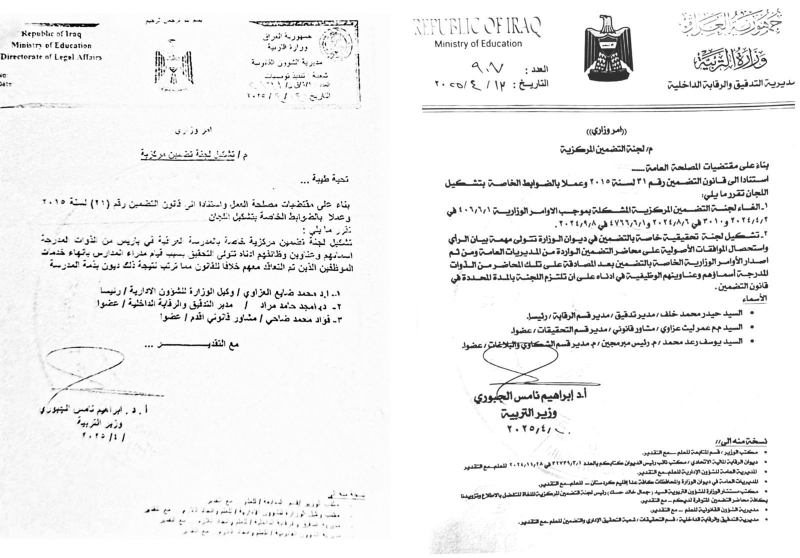 بسم الله الرحمن الرحيم
Republic of Iraq
Ministry of Education
Directorate of Legal Affairs
No:
Date:
جمهورية العراق
وزارة التربية
مديرية الشؤون القانونية
شعبة
العدد
التاريخ
امر وزاري
م / تشكيل لجنة تضمين مركزية
تحية طيبة ...
بناء على مقتضيات مصلحة العمل واستنادا الى قانون التضمين رقم (٣١) لسنة ٢٠١٥
وعملا بالضوابط الخاصة بتشكيل اللجان
تقرر ما يلي :
تشكيل لجنة تضمين مركزية خاصة بالمدرسة العراقية في باريس من الذوات المدرجة
اسمائهم وعناوين وظائفهم ادناه تتولى التحقيق بسبب قيام مدراء المدارس بانهاء خدمات
الموظفين الذين تم التعاقد معهم خلافا للقانون مما ترتب نتيجة ذلك ديون بذمة المدرسة
١- ا.د محمد ضايع العزاوي / وكيل الوزارة للشؤون الادارية / رئيسا
٢- د. امجد حامد مراد / مدير التدقيق والرقابة الداخلية / عضوا
٣- فؤاد محمد ضاحي / مشاور قانوني اقدم / عضوا
... مع التقدير ...
أ . د . ابراهيم نامس الجبوري
وزير التربية
/ ٤ / ٢٠٢٥
نسخة منه الى
REPUBLIC OF IRAQ
Ministry of Education
جمهورية العراق
وزارة التربية
مديرية التدقيق والرقابة الداخلية
العدد : ٩٠٧
التاريخ : ١٢ / ٤ / ٢٠٢٥
((امر وزاري))
م/ لجنة التضمين المركزية
بناءً على مقتضيات المصلحة العامة...
استنادا الى قانون التضمين رقم ٣١ لسنة ٢٠١٥ وعملا بالضوابط الخاصة بتشكيل
اللجان تقرر ما يلي:
١. الغاء لجنة التضمين المركزية المشكلة بموجب الاوامر الوزارية ٤٠٦/٦/١ في
٢٠٢٤/٤/٢ و٣٠١٠ في ٢٠٢٤/٨/٦ و٤٧٦٦/٦/١ في ٢٠٢٤/٩/٨.
٢. تشكيل لجنة تحقيقية خاصة بالتضمين في ديوان الوزارة تتولى مهمة بيان الرأي
واستحصال الموافقات الأصولية على محاضر التضمين الواردة من المديريات العامة ومن ثم
اصدار الأوامر الوزارية الخاصة بالتضمين بعد المصادقة على تلك المحاضر من الذوات
المدرجة أسماؤهم وعناوينهم الوظيفية في ادناه على ان تلتزم اللجنة بالمدة المحددة في
قانون التضمين.
الأسماء
• السيد حيدر محمد خلف / مدير تدقيق / مدير قسم الرقابة / رئيسا.
• السيد جم عمر ليث عزاوي / مشاور قانوني / مدير قسم التحقيقات / عضوا.
• السيد يوسف رعد محمد / م. رئيس مبرمجين / م. مدير قسم الشكاوي والبلاغات / عضوا.
أ.د إبراهيم نامس الجبوري
وزير التربية
/ ٤ / ٢٠٢٥
نسخة منه الى//
• مكتب الوزير / قسم المتابعة للعلم ... مع التقدير.
• ديوان الرقابة المالية الاتحادي / مكتب نائب رئيس الديوان كتابكم بالعدد ٣٢٧٣٩/٣/١ في ٢٠٢٤/١١/٢٨ للعلم... مع التقدير
• المديرية العامة للشؤون الإدارية للعلم... مع التقدير.
• المديريات العامة في ديوان الوزارة والمحافظات كافة عدا إقليم كردستان ... للعلم مع التقدير.
• مديرية الشؤون القانونية للعلم ... مع التقدير.
• مديرية التدقيق والرقابة الداخلية / قسم التحقيقات / شعبة التحقيق الإداري والتضمين للعلم ... مع التقدير.